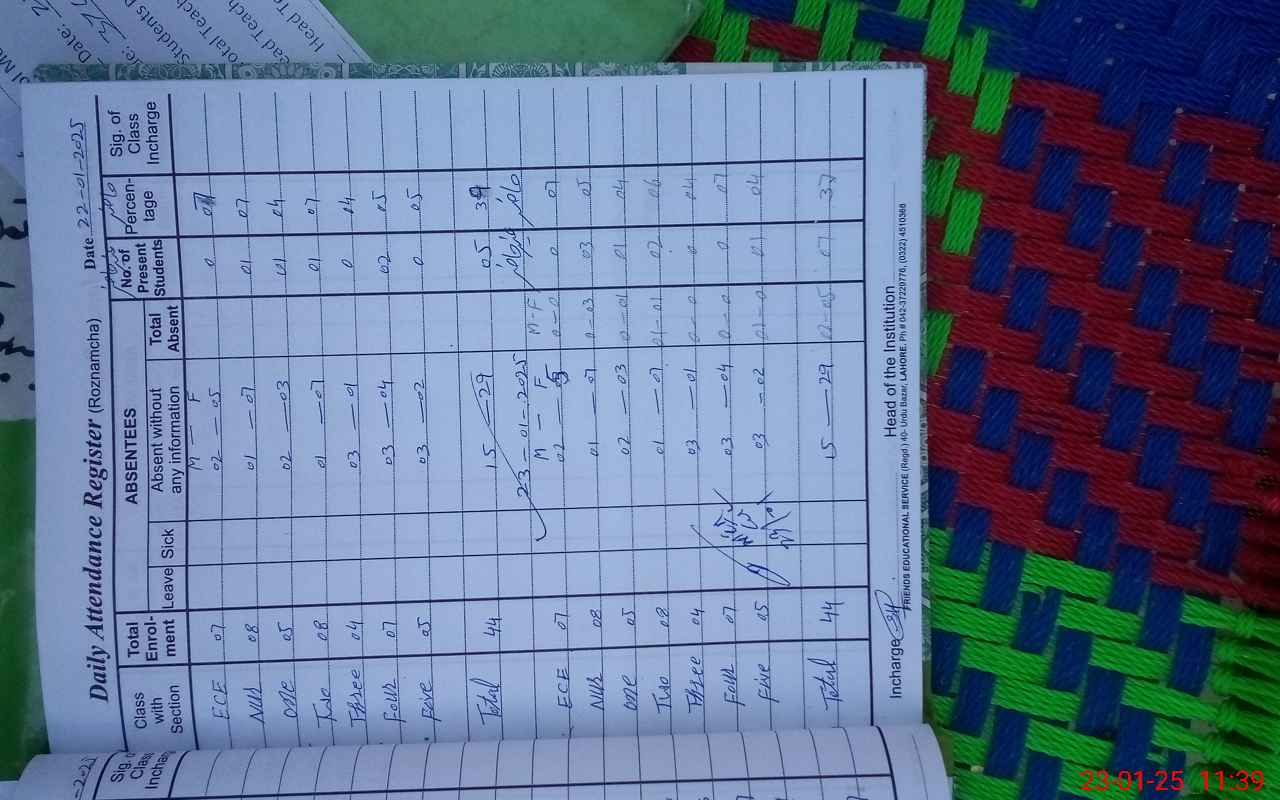 Daily Attendance Register (Roznamcha) Date 22-01-2025
Class with Section Total Enrol-ment ABSENTEES Leave Sick Absent without any information Total Absent حاضر No. of Present Students Percen-tage Sig. of Class Incharge
M — F
ECE 07 02 — 05 0 07
NUR 08 01 — 07 01 07
ONE 05 02 — 03 01 04
Two 08 01 — 07 01 07
Three 04 03 — 01 0 04
Four 07 03 — 04 02 05
Five 05 03 — 02 0 05
Total 44 15 — 29 05 39
23-01-2025
M — F M-F
ECE 07 02 — 05 0-0 0 07
NUR 08 01 — 07 0-03 03 05
ONE 05 02 — 03 0-01 01 04
Two 08 01 — 07 01-01 02 06
Three 04 03 — 01 0-0 0 04
Four 07 03 — 04 0-0 0 07
Five 05 03 — 02 01-0 01 04
Total 44 15 — 29 02-05 07 37
Incharge Head of the Institution
FRIENDS EDUCATIONAL SERVICE (Regd.) 40- Urdu Bazar, LAHORE. Ph # 042-37220776, (0322) 4510366
Date: 2
Students
Total Teach
Head Teach
Head Teach
Sig. of Class Incharge
23-01-25 11:39